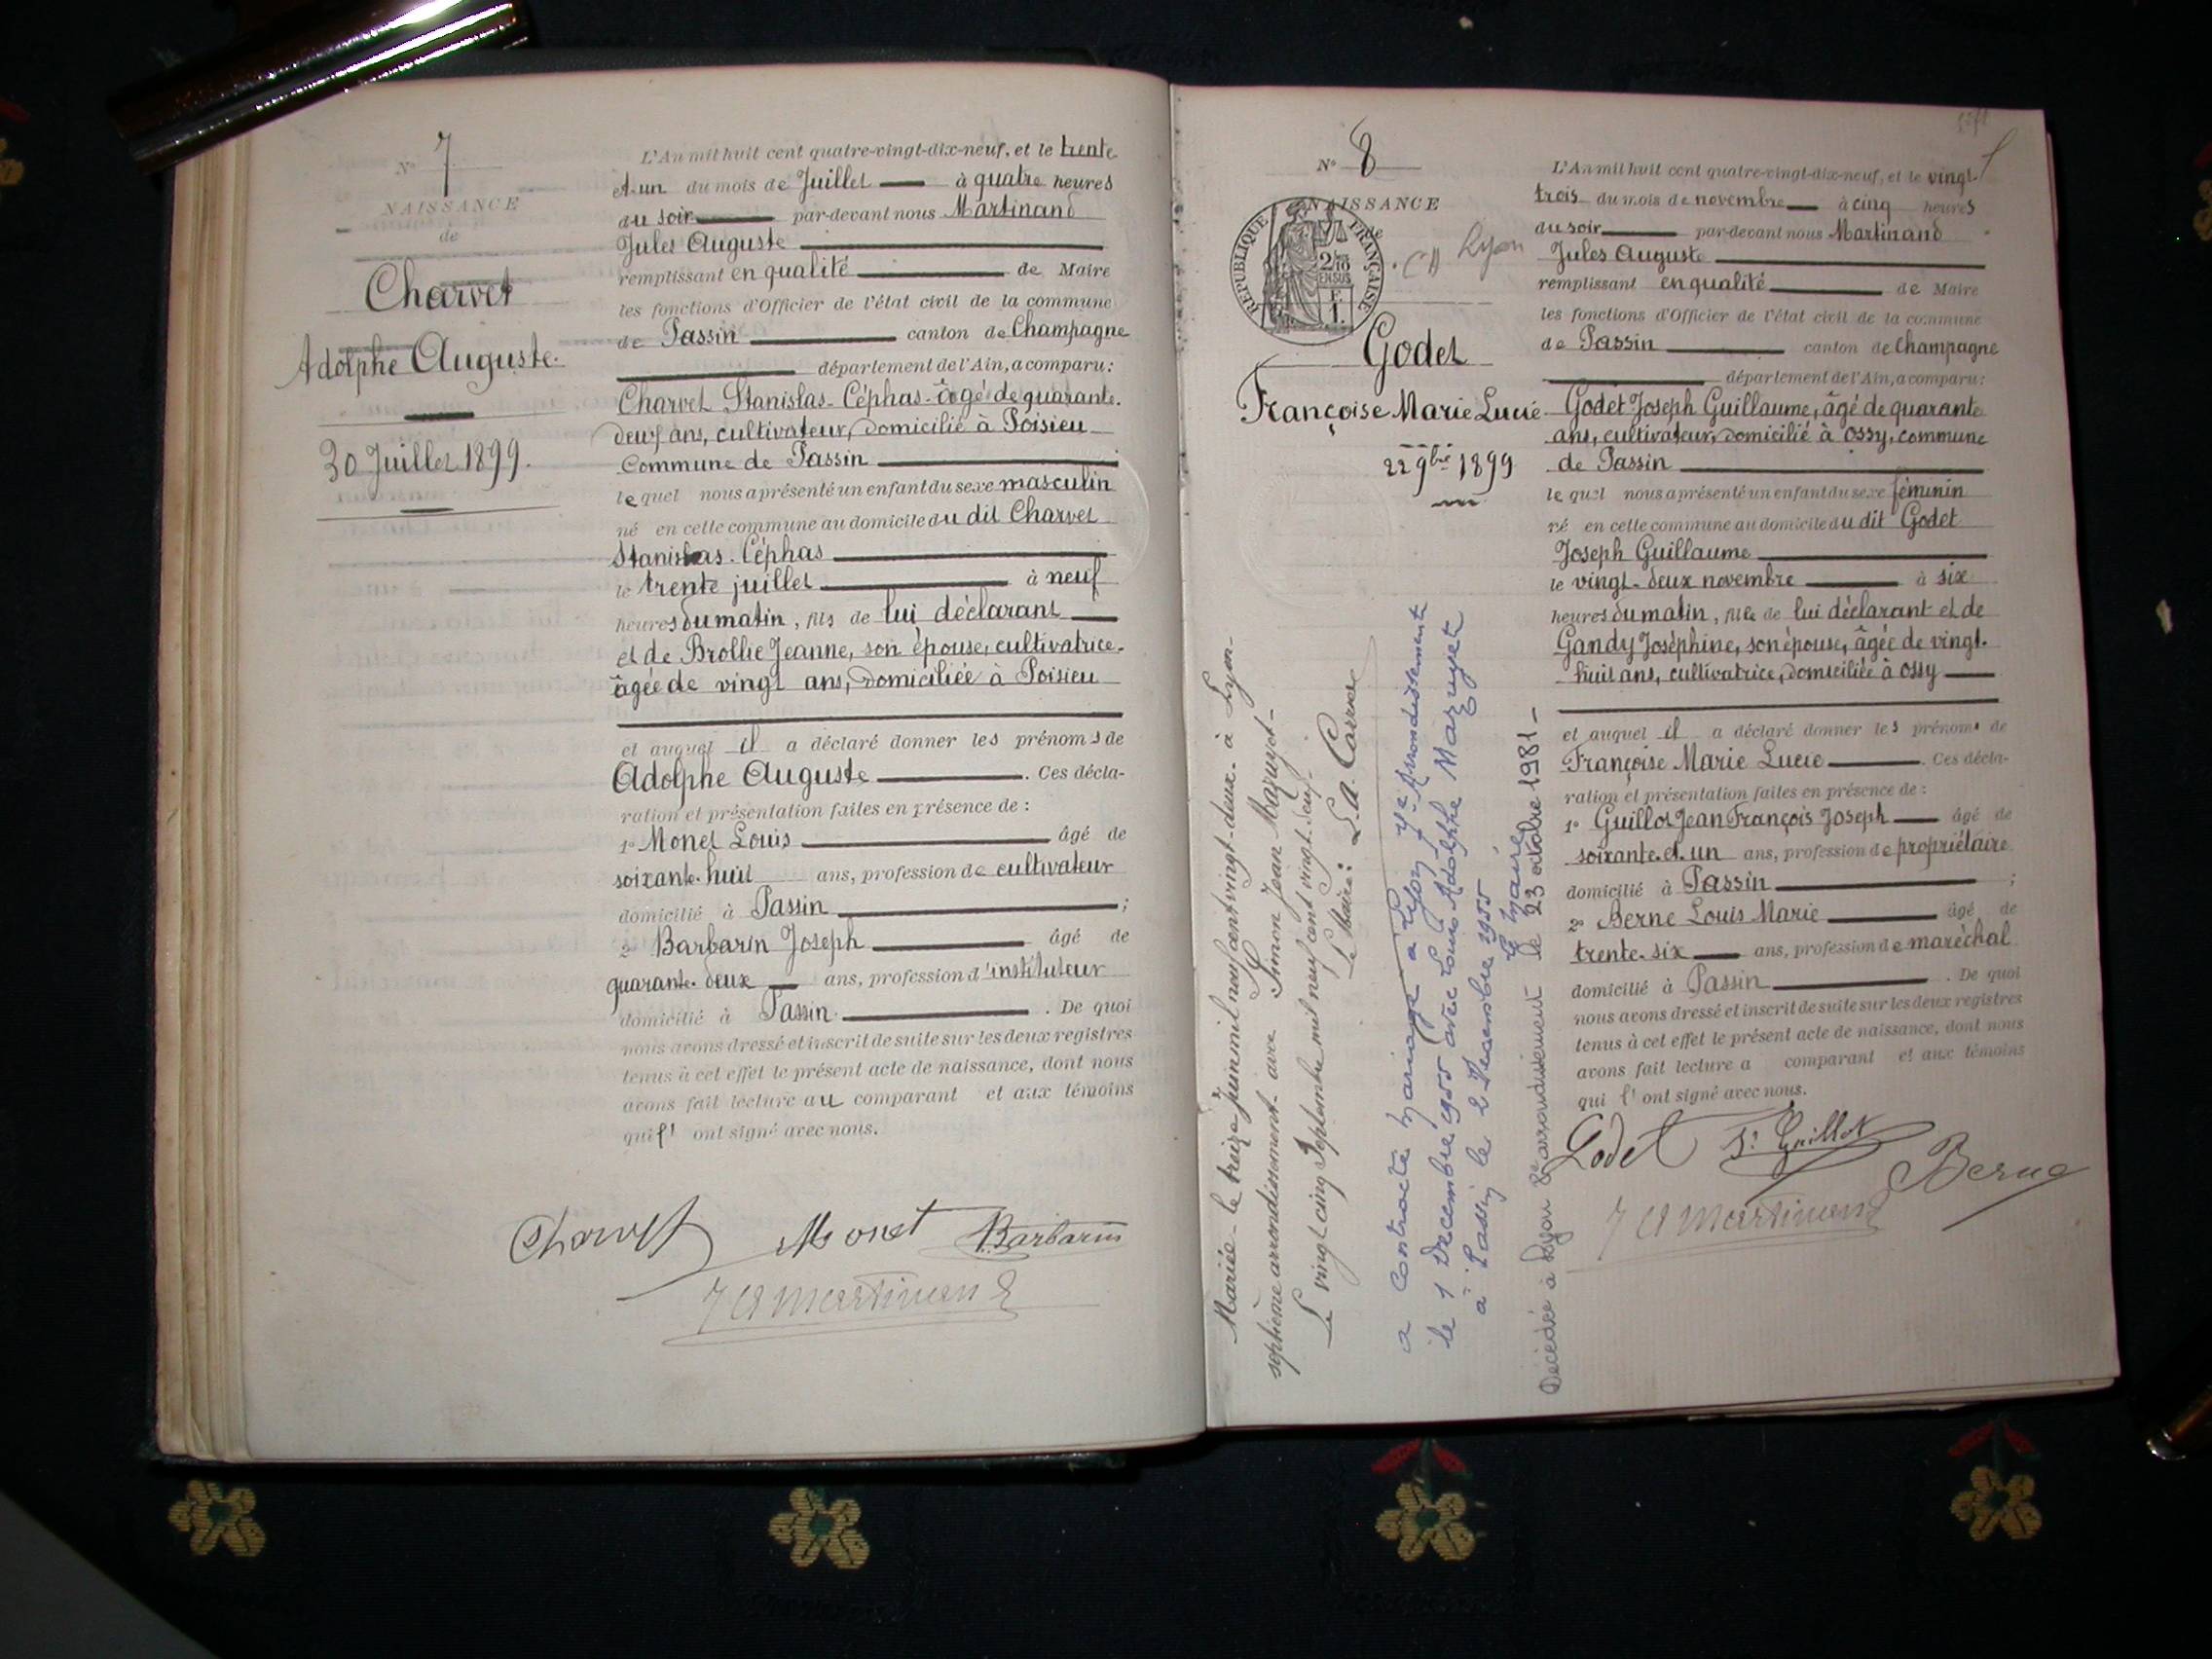 N° 7
NAISSANCE
de
Charvet
Adolphe Auguste.
30 Juillet 1899.
L'An mil huit cent quatre-vingt-dix-neuf, et le trente
et un du mois de Juillet à quatre heures
du soir par-devant nous Martinand
Jules Auguste
remplissant en qualité de Maire
les fonctions d'Officier de l'état civil de la commune
de Passin canton de Champagne
département de l'Ain, a comparu:
Charvet Stanislas-Céphas-âgé de quarante.
deux ans, cultivateur, domicilié à Poisieu
Commune de Passin
lequel nous a présenté un enfant du sexe masculin
né en cette commune au domicile du dit Charvet
Stanislas-Céphas
le trente juillet à neuf
heures du matin, fils de lui déclarant
et de Brollie Jeanne, son épouse, cultivatrice.
âgée de vingt ans, domiciliée à Poisieu
et auquel il a déclaré donner les prénoms de
Adolphe Auguste. Ces décla-
ration et présentation faites en présence de :
1° Monet Louis âgé de
soixante-huit ans, profession de cultivateur
domicilié à Passin ;
2° Barbarin Joseph âgé de
quarante-deux ans, profession d'instituteur
domicilié à Passin. De quoi
nous avons dressé et inscrit de suite sur les deux registres
tenus à cet effet le présent acte de naissance, dont nous
avons fait lecture au comparant et aux témoins
qui l' ont signé avec nous.
Charvet Monet Barbarin
J A Martinand
N° 8
NAISSANCE
de
REPUBLIQUE FRANÇAISE
2/10
EN SUS
F.
1.
Lyon
Godet
Françoise Marie Lucie
22 9bre 1899
L'An mil huit cent quatre-vingt-dix-neuf, et le vingt-
trois du mois de novembre à cinq heures
du soir par-devant nous Martinand
Jules Auguste
remplissant en qualité de Maire
les fonctions d'Officier de l'état civil de la commune
de Passin canton de Champagne
département de l'Ain, a comparu:
Godet Joseph Guillaume, âgé de quarante
ans, cultivateur, domicilié à Ossy, commune
de Passin
lequel nous a présenté un enfant du sexe féminin
né en cette commune au domicile du dit Godet
Joseph Guillaume
le vingt-deux novembre à six
heures du matin, fille de lui déclarant et de
Gandy Joséphine, son épouse, âgée de vingt-
huit ans, cultivatrice, domiciliée à Ossy
et auquel il a déclaré donner les prénoms de
Françoise Marie Lucie. Ces décla-
ration et présentation faites en présence de :
1° Guillot Jean François Joseph âgé de
soixante et un ans, profession de propriétaire
domicilié à Passin ;
2° Berne Louis Marie âgé de
trente-six ans, profession de maréchal
domicilié à Passin. De quoi
nous avons dressé et inscrit de suite sur les deux registres
tenus à cet effet le présent acte de naissance, dont nous
avons fait lecture a comparant et aux témoins
qui l' ont signé avec nous.
Godet Guillot
Berne
J A Martinand
Mariée le treize juin mil neuf cent vingt-deux à Lyon-
septième arrondissement avec Simon Jean Mazuyet-
Le vingt cinq Septembre mil neuf cent vingt-deux
Le Maire: L.A. Carrer
a contracté mariage à Lyon 7e Arrondissement
le 1 Decembre 1955 avec Louis Adolphe Mazuyet
à Passin le 2 Decembre 1955
Le Maire
Décédée à Lyon 8e arrondissement le 23 octobre 1981-